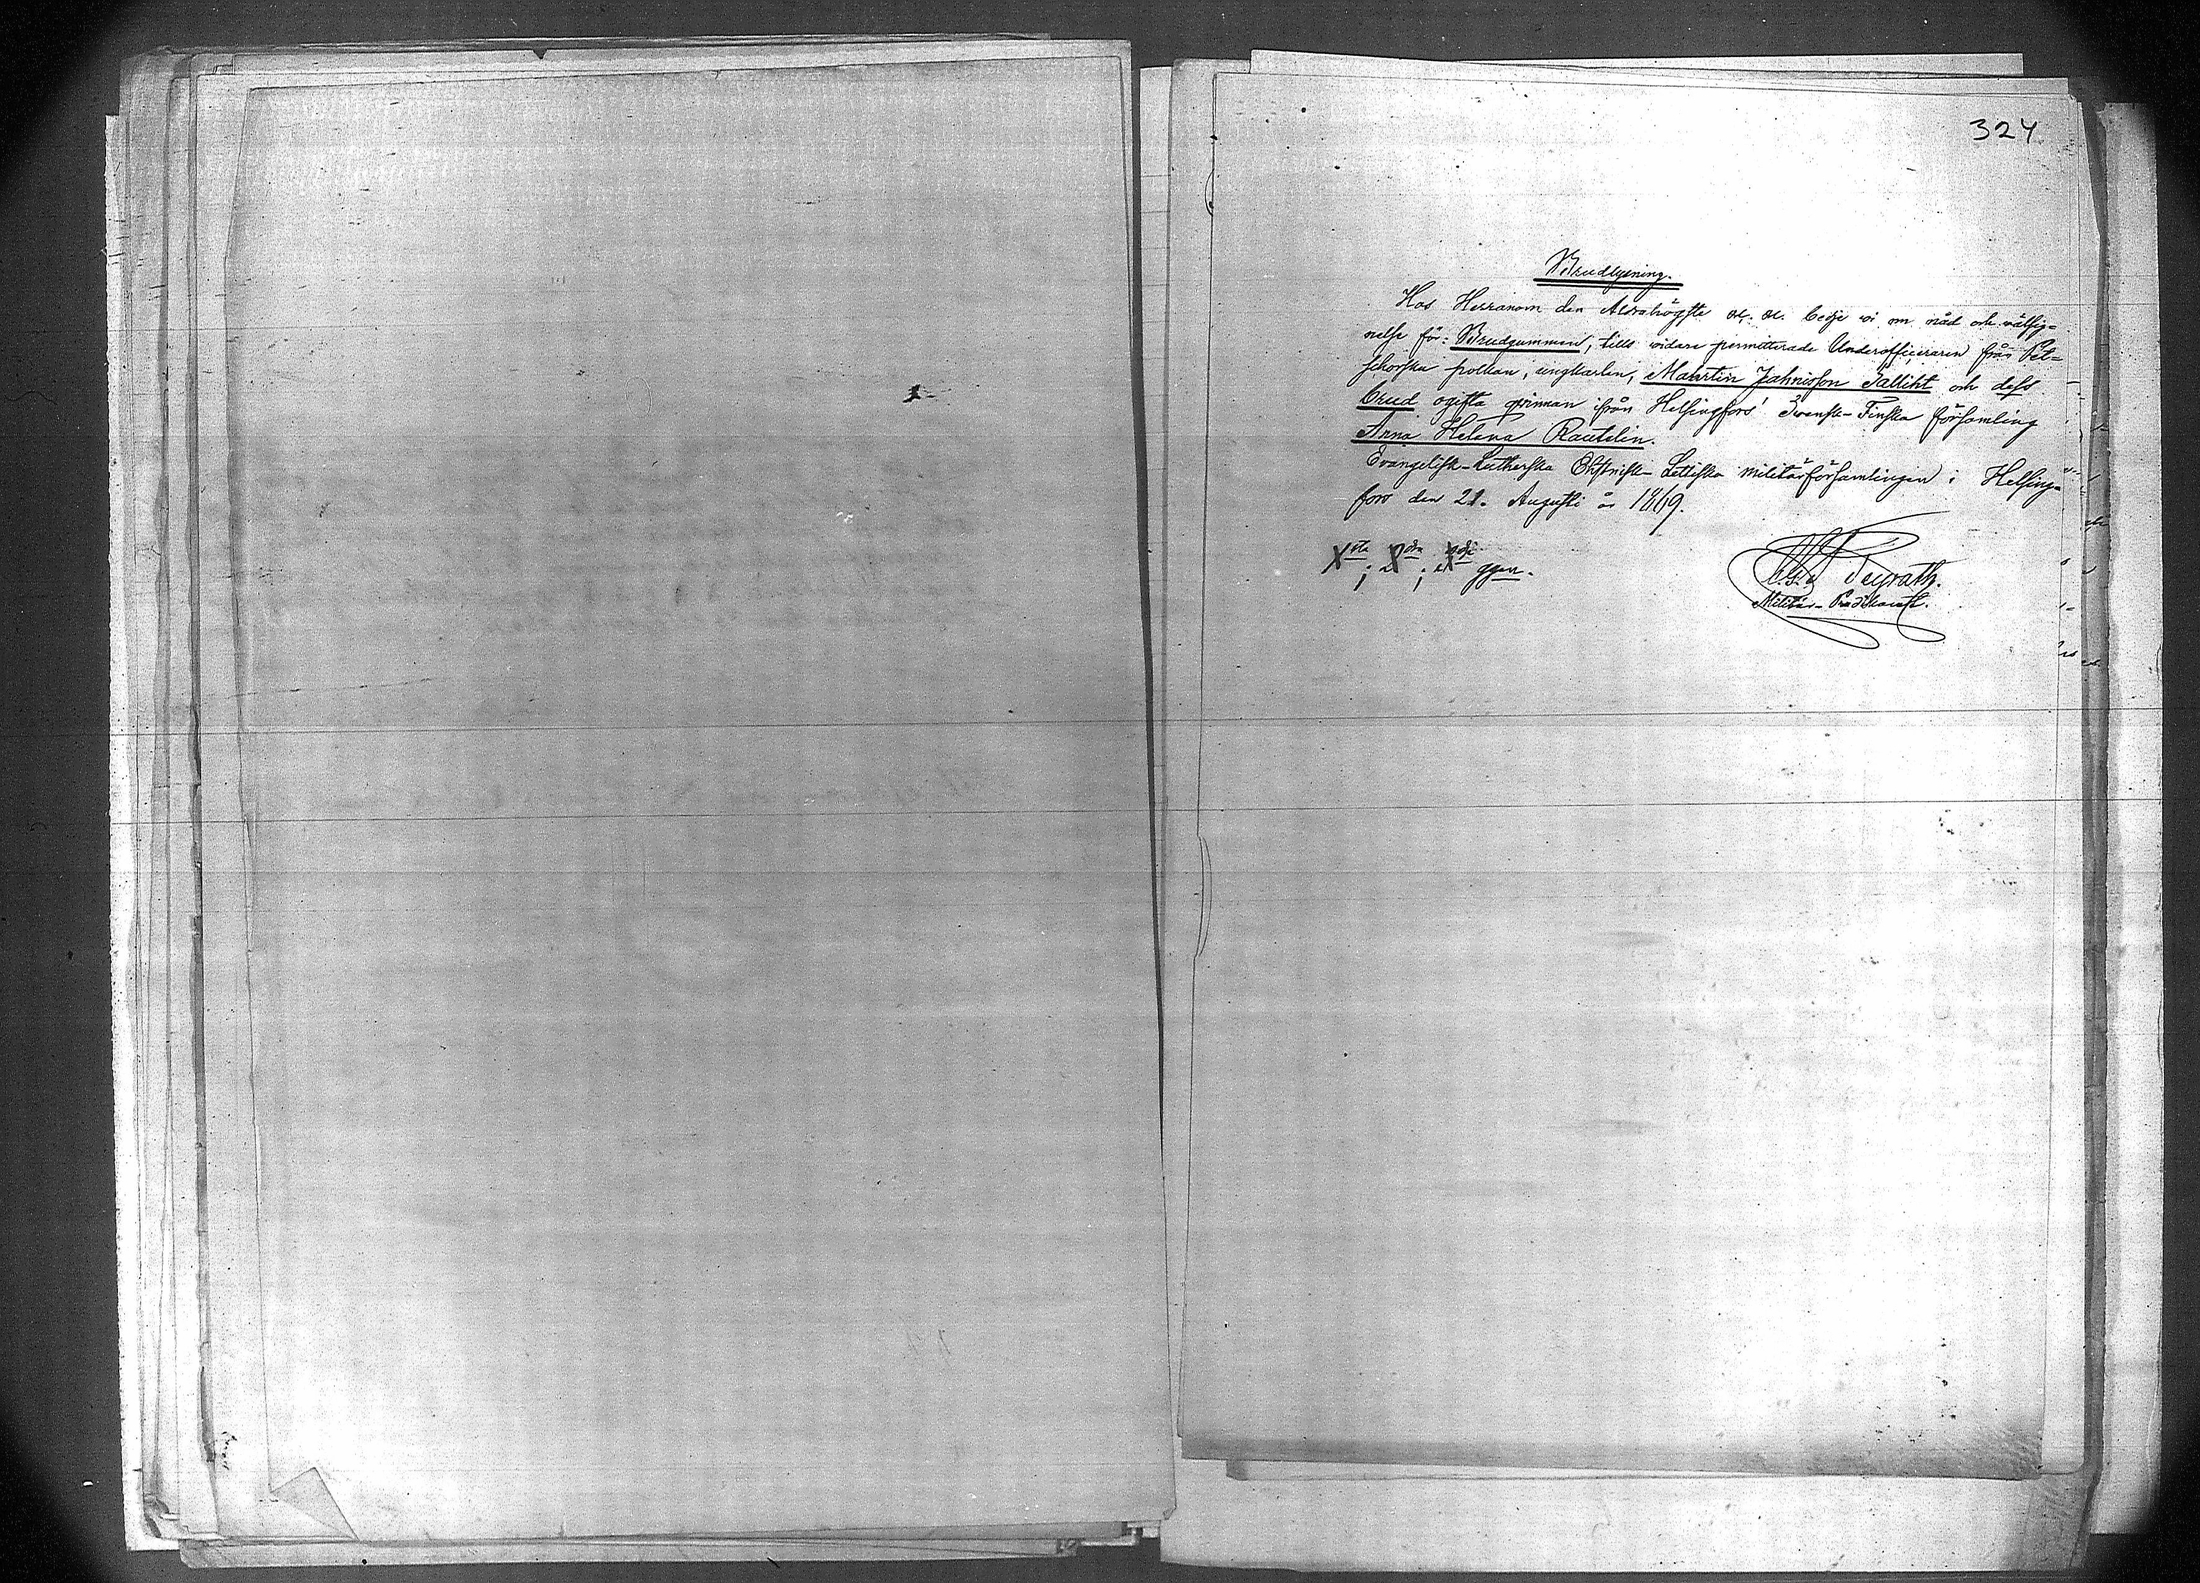 324
Brudlysning.
Hos Herranom den Aldrahögste &c. &c. bedje vi om nåd och välsig=
nelse för: Brudgummen, tills vidare permitterade Underofficeraren från Pet=
schorska polkan, ungkarlen, Maartin Jahnisson Salliht och dess
brud ogifta qvinnan ifrån Helsingfors' Svensk-Finska församling
Anna Helena Rautelin.
Evangelisk-Lutherska Ehstnisk-Lettiska militärförsamlingen i Helsing=
fors den 21. Augusti år 1869.
sta; dra; dje ggen.
Militär-Predikant.